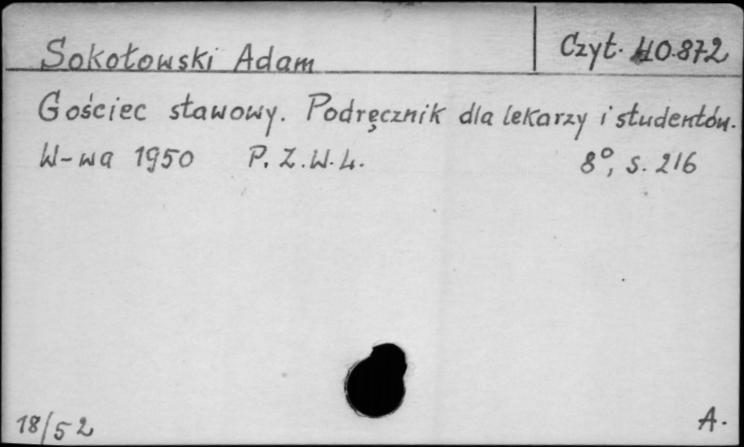 Sokołowski Adam
Czyt. 40.872
Gościec stawowy. Podręcznik dla lekarzy i studentów.
W-wa 1950 P.Z.W.L. 8°, s. 216
18/52
A.